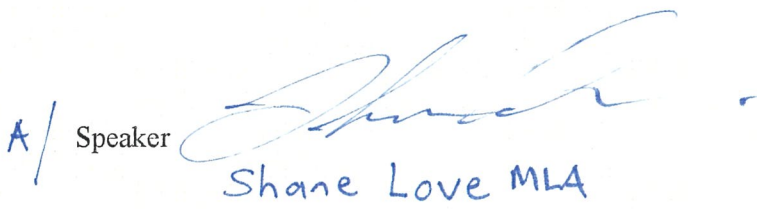 A/ Speaker
Shane Love MLA